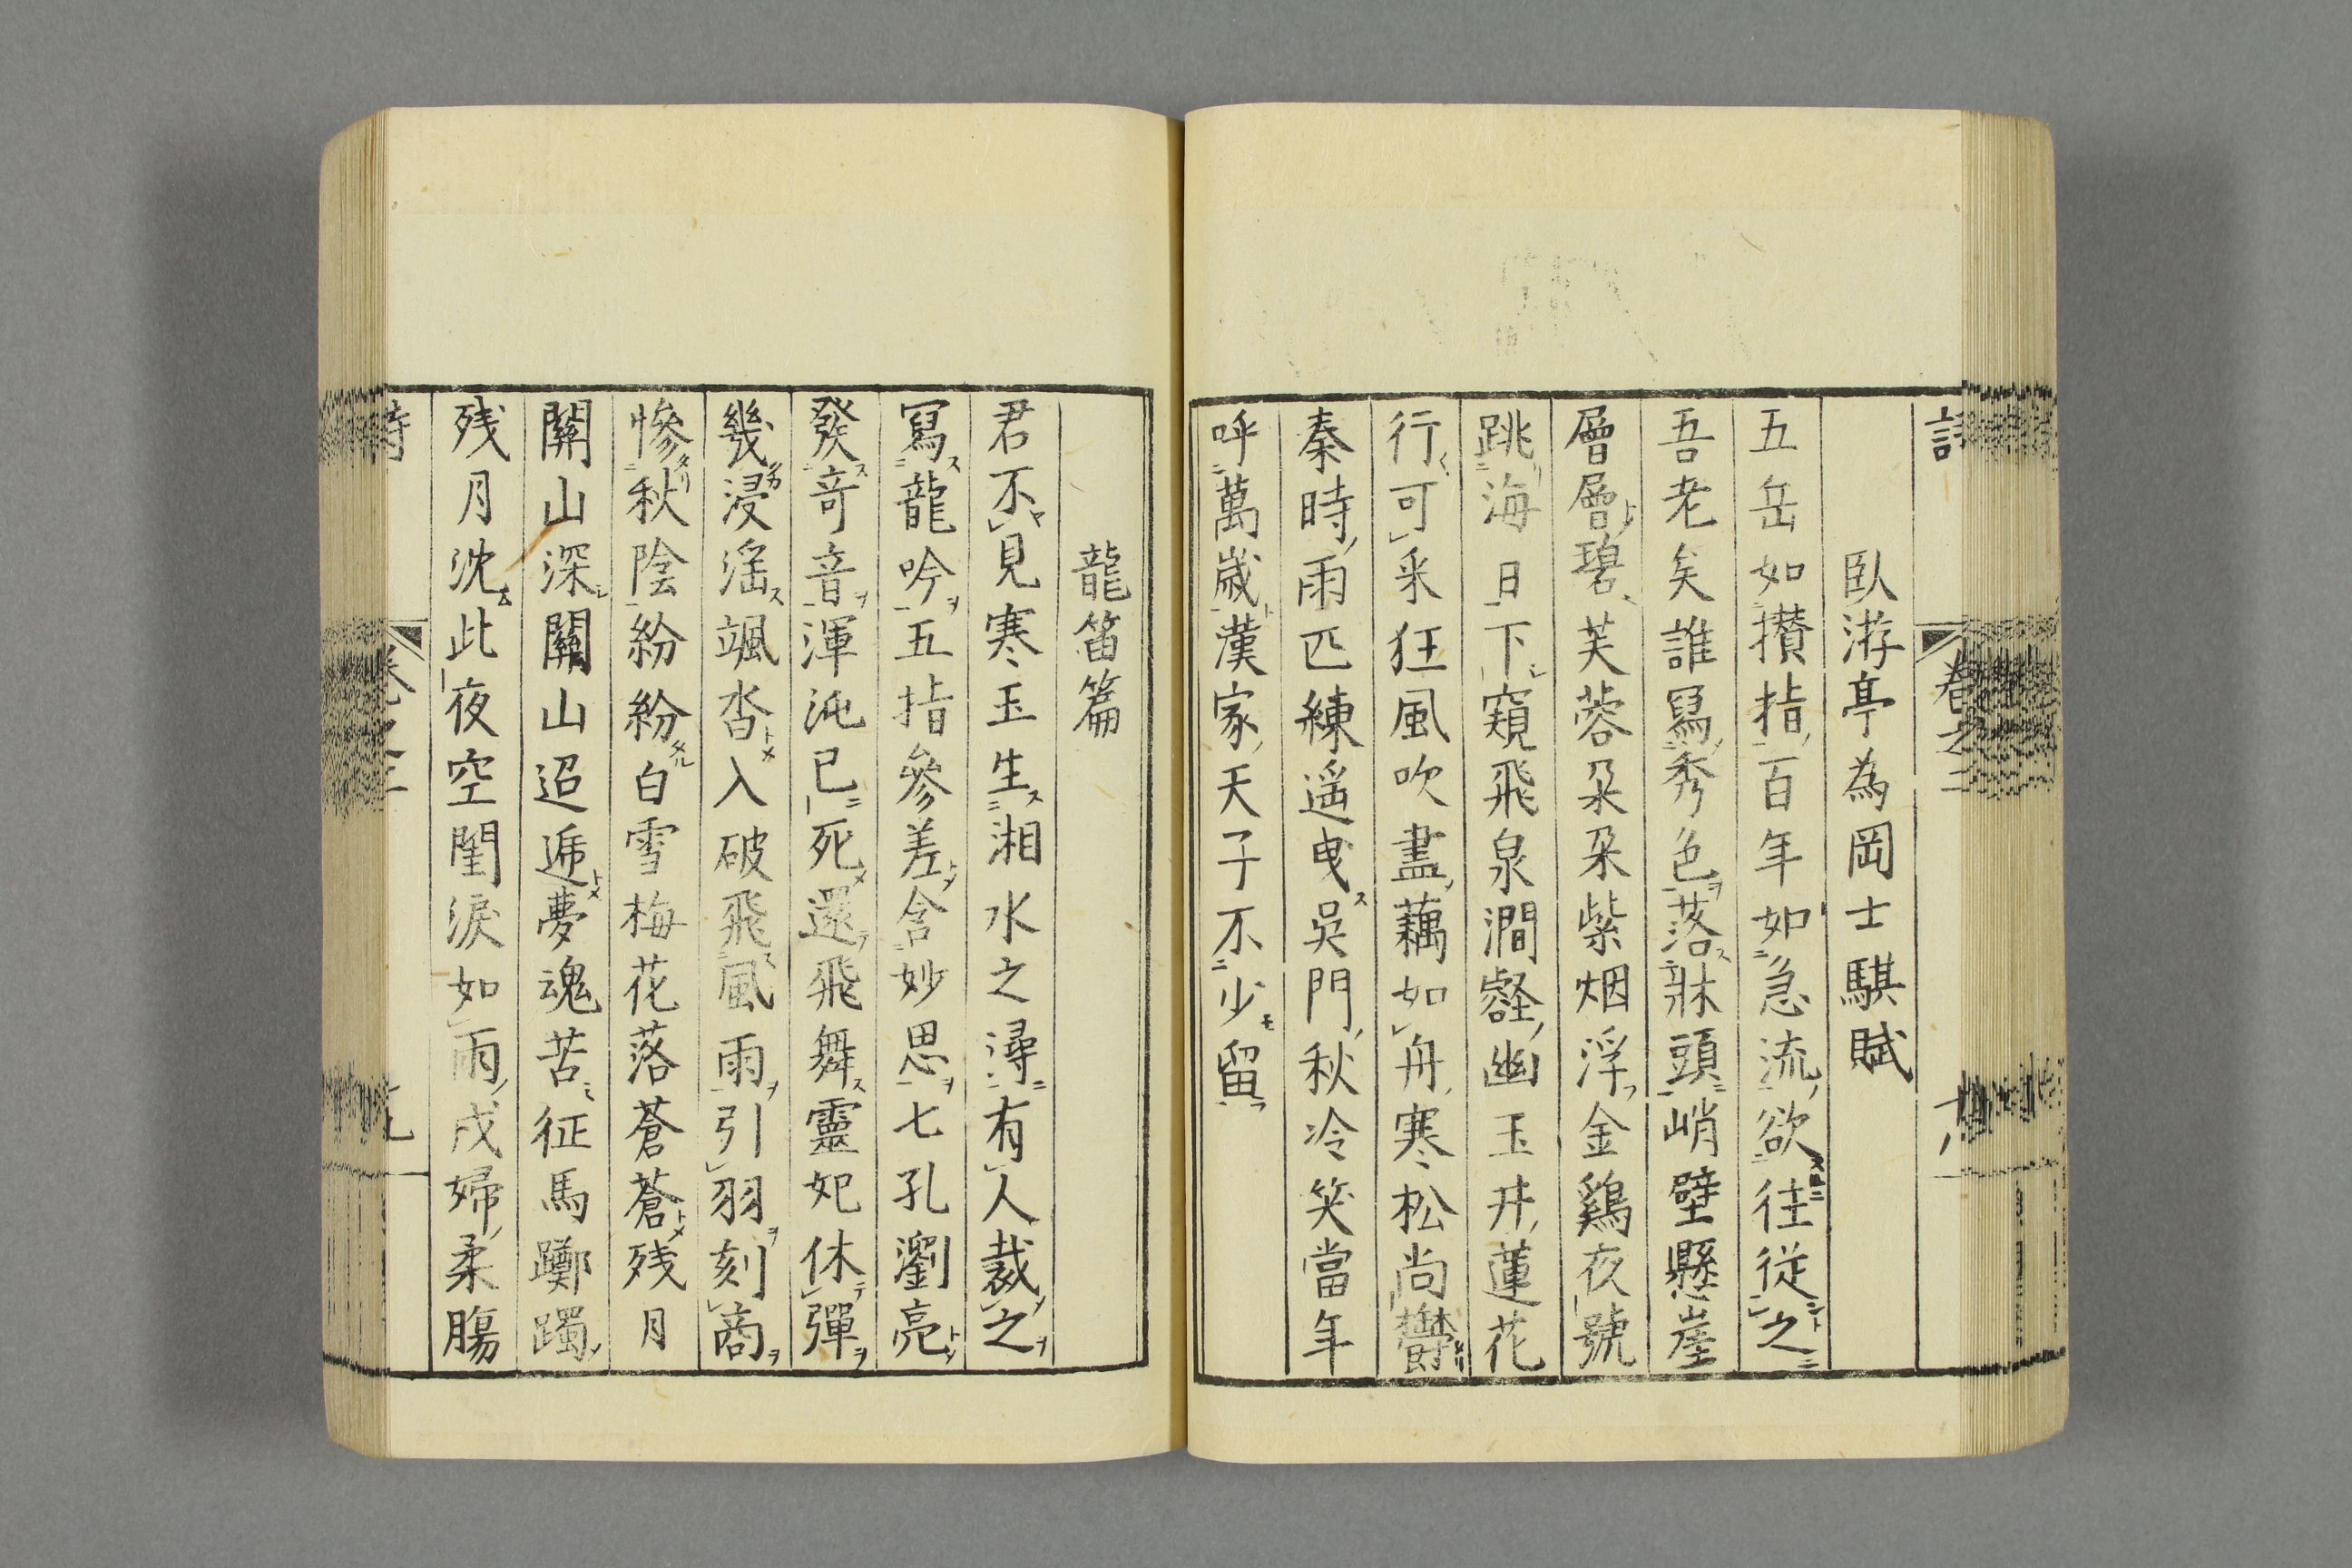 臥游亭為岡士騏賦
五岳如攢指百年如急流欲往從之
吾老矣誰寫秀色落牀頭峭壁懸崖
層層碧芙蓉朶朶紫烟浮金鷄夜號
跳海日下窺飛泉澗壑幽玉井蓮花
行可采狂風吹盡藕如舟寒松尚鬱
秦時雨匹練遥曳吳門秋冷笑當年
呼萬歲漢家天子不少留
卷之二
龍笛篇
君不見寒玉生湘水之潯有人裁之
寫龍吟五指參差含妙思七孔瀏亮
發奇音渾沌已死還飛舞靈妃休彈
幾浸滛颯沓入破飛風雨引羽刻商
慘秋陰紛紛白雪梅花落蒼蒼残月
關山深關山迢遞夢魂苦征馬躑躅
残月沈此夜空閨淚如雨戍婦柔腸